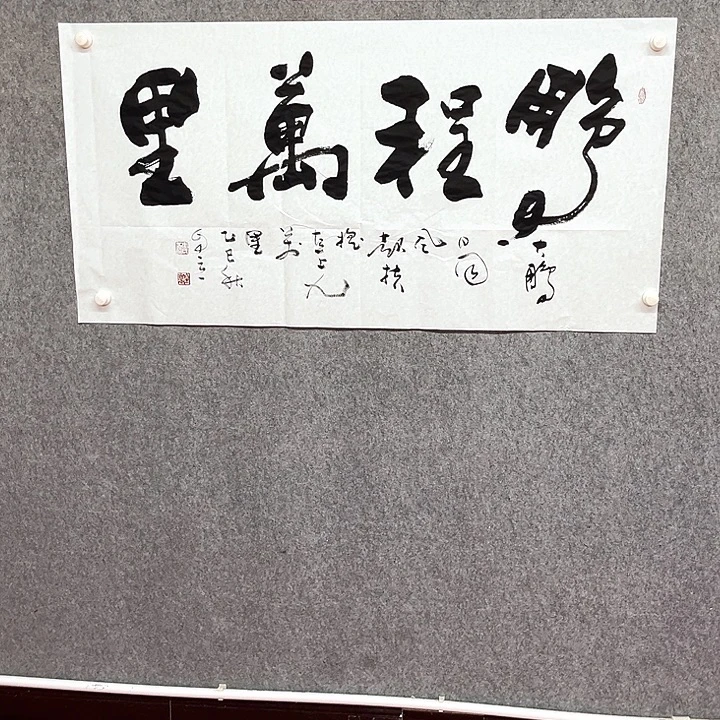 鵬程萬里
大鵬一日同風起扶搖直上九萬里
乙巳秋